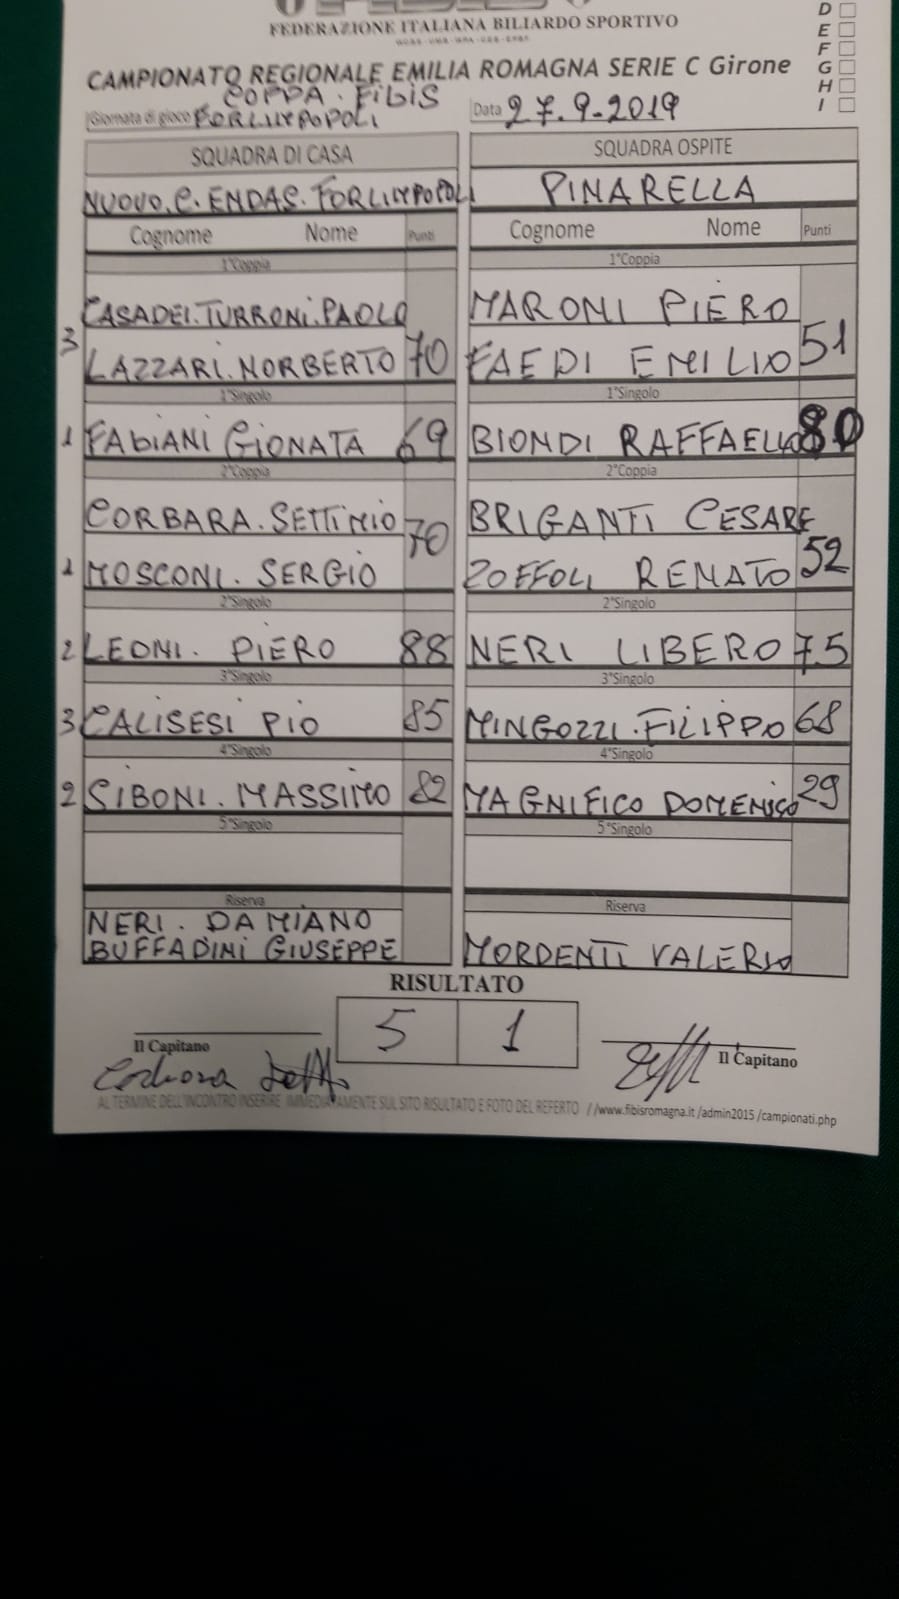 FEDERAZIONE ITALIANA BILIARDO SPORTIVO
D
E
F
G
H
I
CAMPIONATO REGIONALE EMILIA ROMAGNA SERIE C Girone
COPPA. FIBIS
Giornata di gioco FORLIMPOPOLI
Data 27.9-2019
SQUADRA DI CASA
SQUADRA OSPITE
NUOVO.C.ENDAS.FORLIMPOPOLI
PINARELLA
Cognome Nome Punti
Cognome Nome Punti
1°Coppia
1°Coppia
CASADEI.TURRONI.PAOLO
MARONI PIERO
3 LAZZARI.NORBERTO 70
FAEDI EMILIO 51
1°Singolo
1°Singolo
1 FABIANI GIONATA 69
BIONDI RAFFAELLO 80
2°Coppia
2°Coppia
CORBARA.SETTIMIO
BRIGANTI CESARE
1 MOSCONI. SERGIO 70
ZOFFOLI RENATO 52
2°Singolo
2°Singolo
2 LEONI. PIERO 88
NERI LIBERO 75
3°Singolo
3°Singolo
3 CALISESI PIO 85
MINGOZZI.FILIPPO 68
4°Singolo
4°Singolo
2 SIBONI.MASSIMO 82
MAGNIFICO DOMENICO 29
5°Singolo
5°Singolo
Riserva
Riserva
NERI. DAMIANO
BUFFADINI GIUSEPPE
MORDENTI VALERIO
RISULTATO
5 1
Il Capitano
Il Capitano
AL TERMINE DELL'INCONTRO INSERIRE IMMEDIATAMENTE SUL SITO RISULTATO E FOTO DEL REFERTO //www.fibisromagna.it /admin2015 /campionati.php